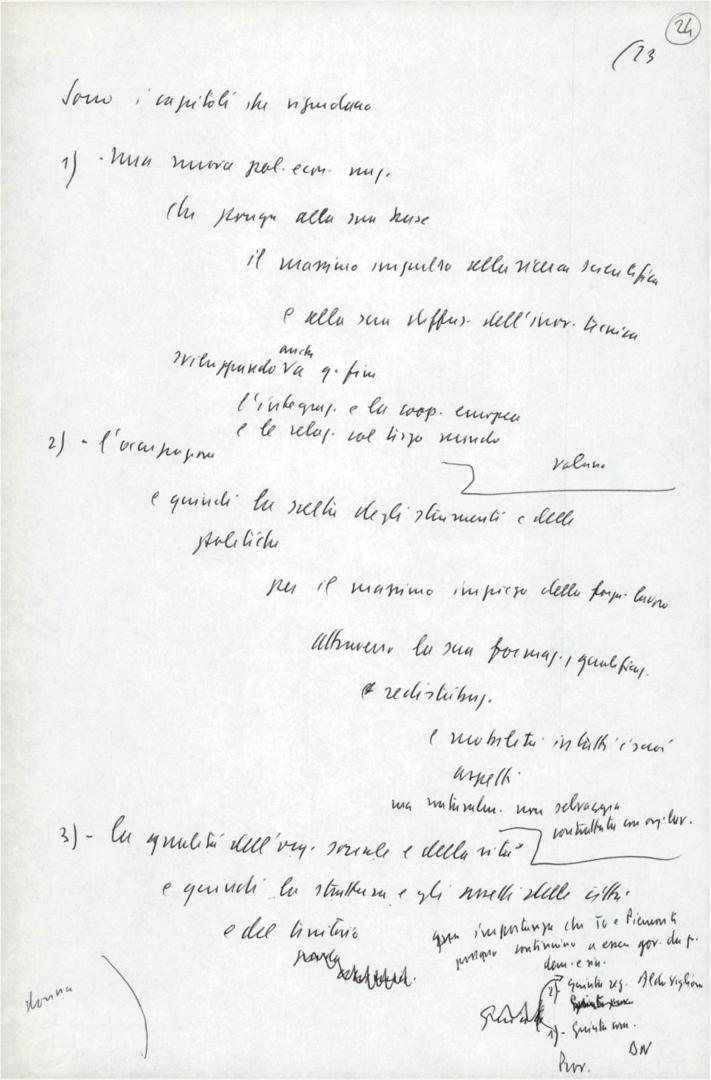 24
(23
Sono i capitoli che riguardano
1) - una nuova pol. econ. naz.
che ponga alla sua base
il massimo impulso alla ricerca scientifica
e alla sua diffus. dell'inov. tecnica
anche
sviluppando a q. fine
l'integraz. e la coop. europea
e le relaz. col terzo mondo
2) - l'occupazione
e quindi la scelta degli strumenti e delle
politiche
per il massimo impiego della forza-lavoro
attraverso la sua formaz., qualificaz.
e redistribuz.
e mobilità in tutti i suoi
aspetti
ma naturalm. non selvaggia
contrattata con org. lav.
3) - la qualità dell'org. sociale e della vita
e quindi la struttura e gli assetti delle città
e del territorio
importanza che To e Piemonte
possano continuare a esser gov. da p.
dem. e sin.
donna
2) quinta reg. Aldo Viglione
1) - Giunta com.
DN
Prov.